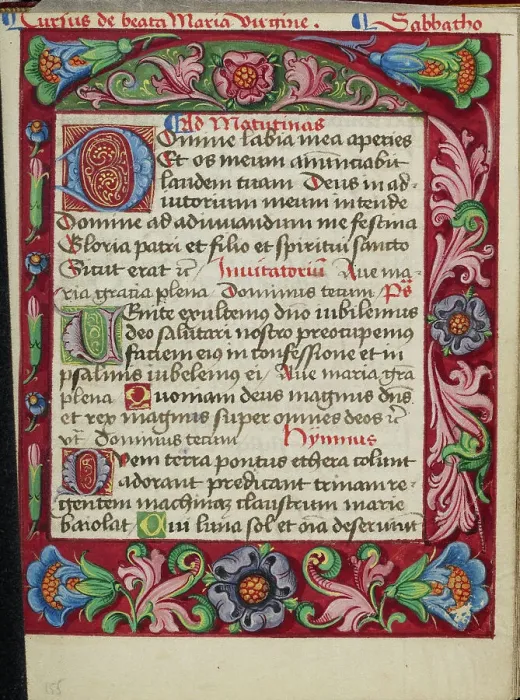 Cursus de beata Maria virgine . Sabbatho
Ad Matutinas
Domine labia mea aperies
Et os meum annunciabit
laudem tuam Deus in ad-
iutorium meum intende
Domine ad adiuuandum me festina
Gloria patri et filio et spiritui sancto
Sicut erat ut̄ Inuitatoriū Aue ma-
ria gratia plena Dominus tecum Ps
Venite exultemus dn̄o iubilemus
deo salutari nostro preocupemus
faciem eius in confessione et in
psalmis iubelemus ei Aue maria gr̄a
plena Quoniam deus magnus dn̄s
et rex magnus super omnes deos ut̄
vt̄ Dominus tecum Hymnus
Quem terra pontus ethera colunt
adorant predicant trinam re-
gentem machinaꝫ claustrum marie
baiolat Cui luna sol et oīa deseruiūt
155